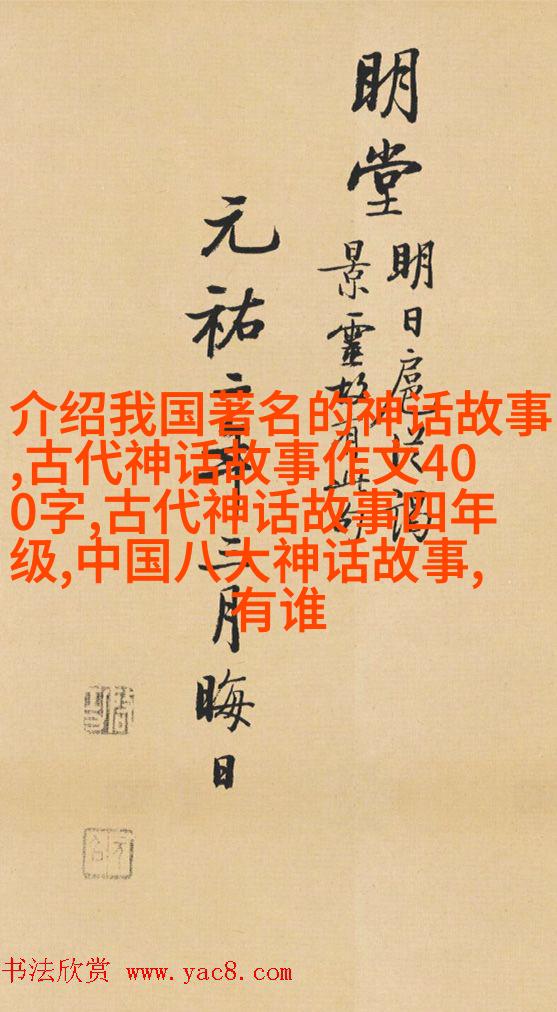 明堂
明日扈從謁
景靈故有此句
元祐
三月晦日
介绍我国著名的神话故事
,古代神话故事作文40
0字,古代神话故事四年
级,中国八大神话故事,
有谁
书法欣赏 www.yac8.com